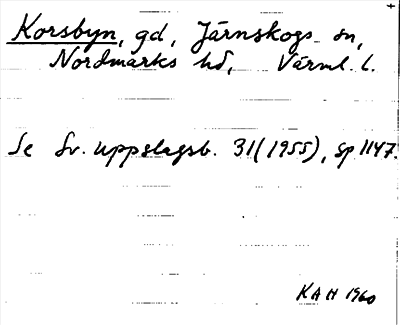 Korsbyn, gd, Järnskogs sn,
Nordmarks hd, Värml. l.
Se Sv. uppslagsb. 31(1955), sp 1147.
KAH 1960